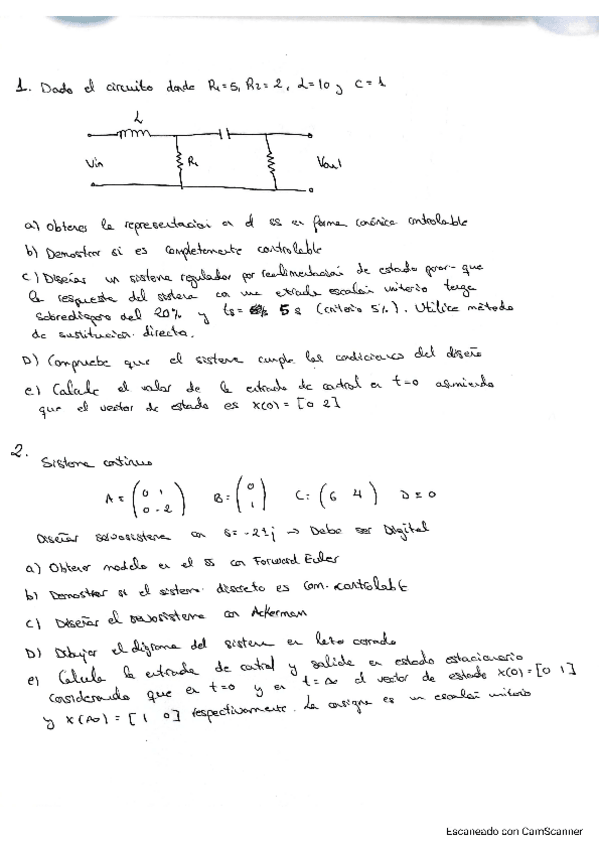 1. Dado el circuito donde R1=5, R2=2, L=10 y C=1
L
Vin
R1
Vout
a) Obtener la representacion en el ss en forma canónica controlable
b) Demostrar si es completamente controlable
c) Diseñar un sistema regulador por realimentación de estado para que
la respuesta del sistema con una entrada escalón unitario tenga
sobredisparo del 20% y ts= 5 s (criterio 5%). Utilice método
de sustitución directa.
D) Compruebe que el sistema cumple las condiciones del diseño
e) Calcule el valor de la entrada de control en t=0 asumiendo
que el vector de estado es x(0) = [0 2]
2.
Sistema continuo
A = (0 1
0 -2)
B = (0
1)
C = (6 4)
D = 0
Diseñar servosistema con s= -2±j → Debe ser Digital
a) Obtener modelo en el ss con Forward Euler
b) Demostrar si el sistema discreto es com. controlable
c) Diseñar el servosistema con Ackerman
D) Dibujar el digrama del sistema en lazo cerrado
e) Calcula la entrada de control y salida en estado estacionario
considerando que en t=0 y en t=Δ el vector de estado x(0)=[0 1]
y x(Δ) = [1 0] respectivamente. La consigna es un escalón unitario
Escaneado con CamScanner